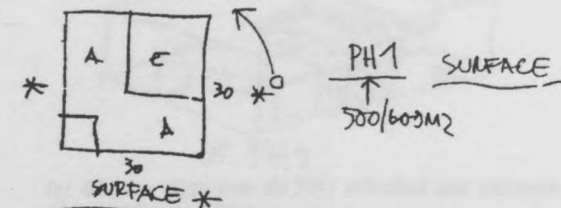 A E
* 30 *
A
30
SURFACE *
PH1 SURFACE
500/600M2